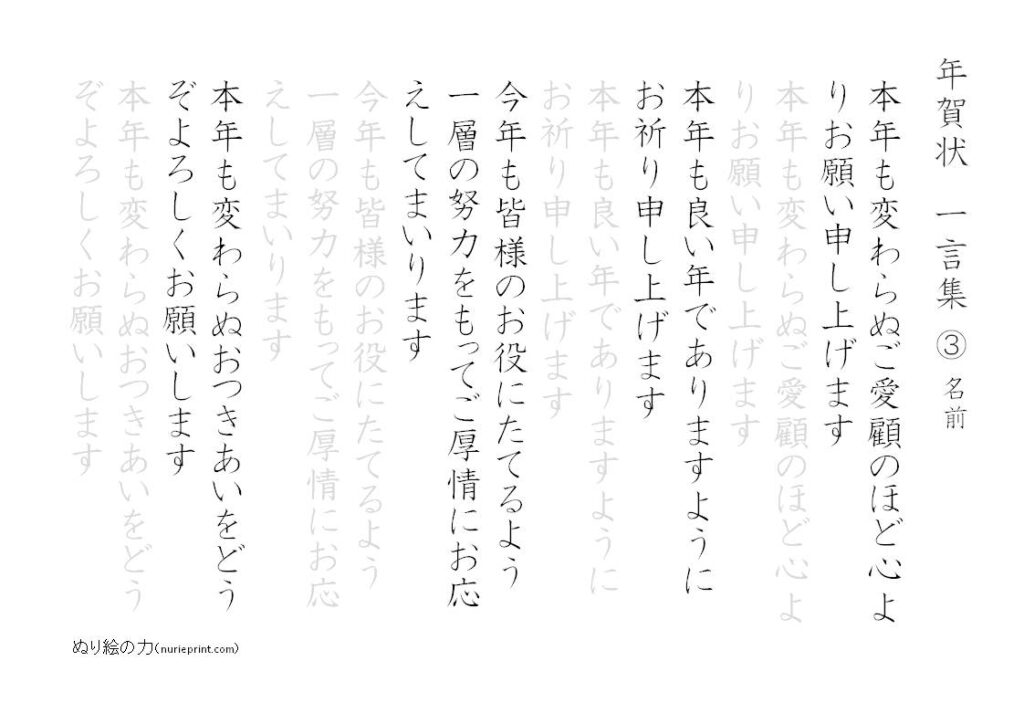 年賀状 一言集 ③ 名前
本年も変わらぬご愛顧のほど心よ
りお願い申し上げます
本年も変わらぬご愛顧のほど心よ
りお願い申し上げます
本年も良い年でありますように
お祈り申し上げます
本年も良い年でありますように
お祈り申し上げます
今年も皆様のお役にたてるよう
一層の努力をもってご厚情にお応
えしてまいります
今年も皆様のお役にたてるよう
一層の努力をもってご厚情にお応
えしてまいります
本年も変わらぬおつきあいをどう
ぞよろしくお願いします
本年も変わらぬおつきあいをどう
ぞよろしくお願いします
ぬり絵の力(nurieprint.com)